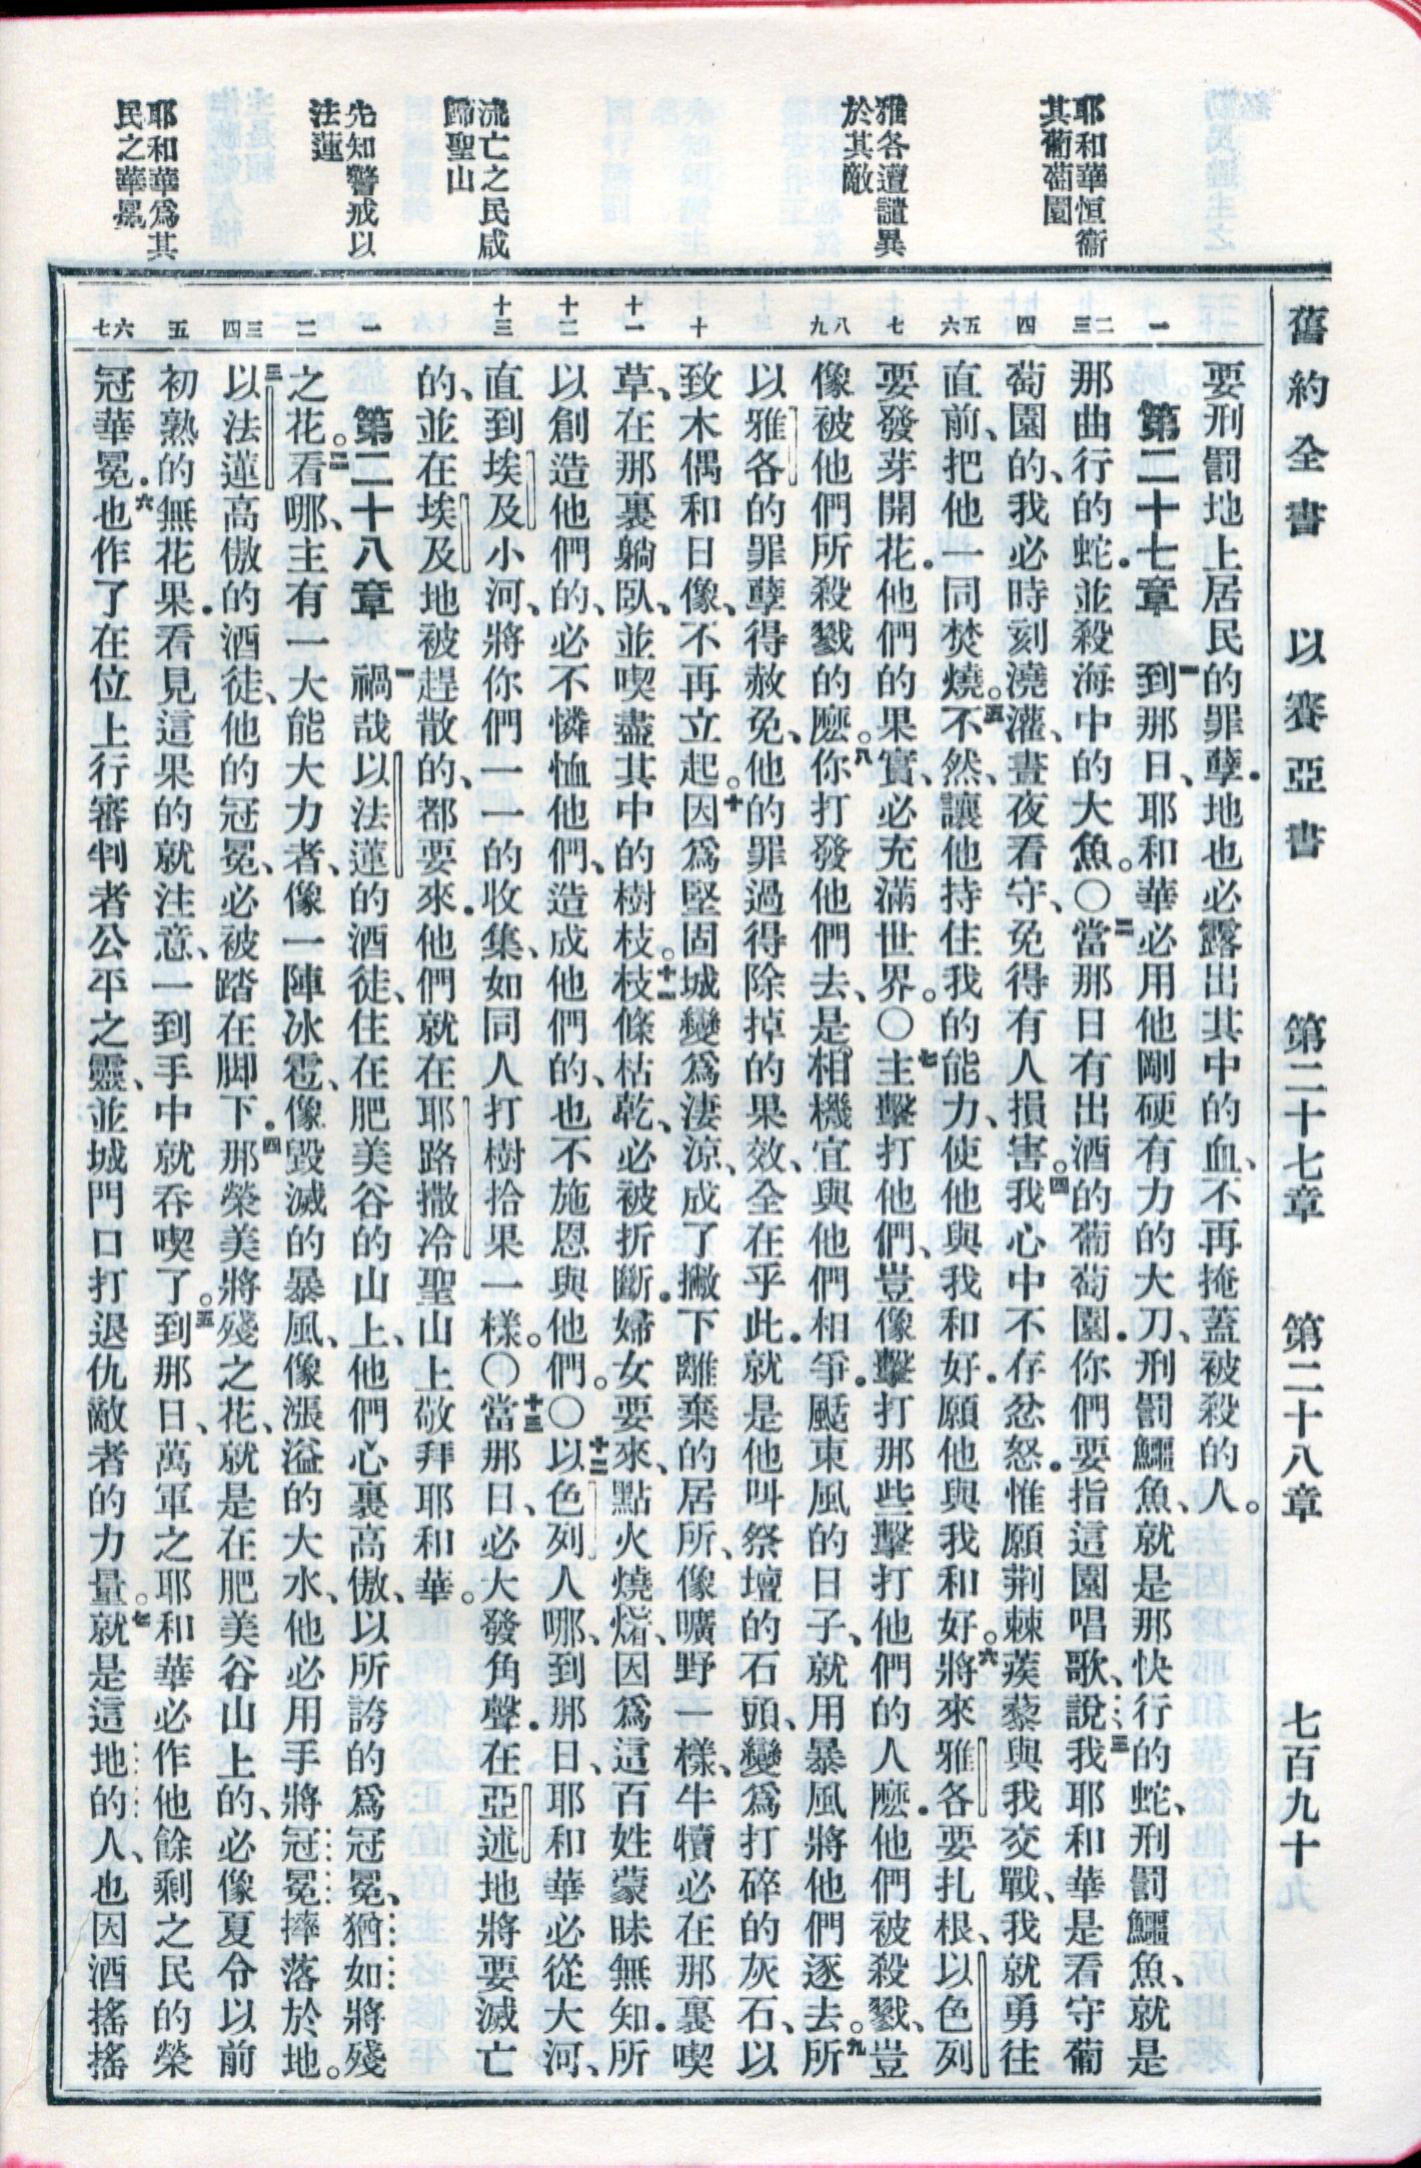 舊約全書 以賽亞書 第二十七章 第二十八章 七百九十九
耶和華恒衞
其葡萄園
雅各遭譴異
於其敵
流亡之民咸
歸聖山
先知警戒以
法蓮
耶和華爲其
民之華冕
一
二
三
四
五
六
七
八
九
十
十一
十二
十三
一
二
三
四
五
六
七
要刑罰地上居民的罪孽．地也必露出其中的血、不再掩蓋被殺的人。
第二十七章 一到那日、耶和華必用他剛硬有力的大刀、刑罰鱷魚、就是那快行的蛇、刑罰鱷魚、就是
那曲行的蛇．並殺海中的大魚。〇二當那日有出酒的葡萄園．你們要指這園唱歌、說三我耶和華是看守葡
萄園的、我必時刻澆灌、晝夜看守、免得有人損害。四我心中不存忿怒．惟願荆棘蒺藜與我交戰、我就勇往
直前、把他一同焚燒。五不然、讓他持住我的能力、使他與我和好．願他與我和好。六將來雅各要扎根、以色列
要發芽開花．他們的果實、必充滿世界。〇七主擊打他們、豈像擊打那些擊打他們的人麽．他們被殺戮、豈
像被他們所殺戮的麽。八你打發他們去、是相機宜與他們相爭．颳東風的日子、就用暴風將他們逐去。九所
以雅各的罪孽得赦免、他的罪過得除掉的果效、全在乎此．就是他叫祭壇的石頭、變爲打碎的灰石、以
致木偶和日像、不再立起。十因爲堅固城變爲淒涼、成了撇下離棄的居所、像曠野一樣、牛犢必在那裏喫
草、在那裏躺臥、並喫盡其中的樹枝。十一枝條枯乾、必被折斷．婦女要來、點火燒㸅、因爲這百姓蒙昧無知．所
以創造他們的、必不憐恤他們、造成他們的、也不施恩與他們。〇十二以色列人哪、到那日、耶和華必從大河、
直到埃及小河、將你們一一的收集、如同人打樹拾果一樣。〇十三當那日、必大發角聲．在亞述地將要滅亡
的、並在埃及地被趕散的、都要來．他們就在耶路撒冷聖山上敬拜耶和華。
第二十八章 一禍哉以法蓮的酒徒、住在肥美谷的山上、他們心裏高傲、以所誇的爲冠冕、猶如將殘
之花。二看哪、主有一大能大力者、像一陣冰雹、像毀滅的暴風、像漲溢的大水、他必用手將冠冕摔落於地。
三以法蓮高傲的酒徒、他的冠冕、必被踏在脚下．四那榮美將殘之花、就是在肥美谷山上的、必像夏令以前
初熟的無花果．看見這果的就注意、一到手中就吞喫了。五到那日、萬軍之耶和華必作他餘剩之民的榮
冠華冕．六也作了在位上行審判者公平之靈、並城門口打退仇敵者的力量。七就是這地的人、也因酒搖搖